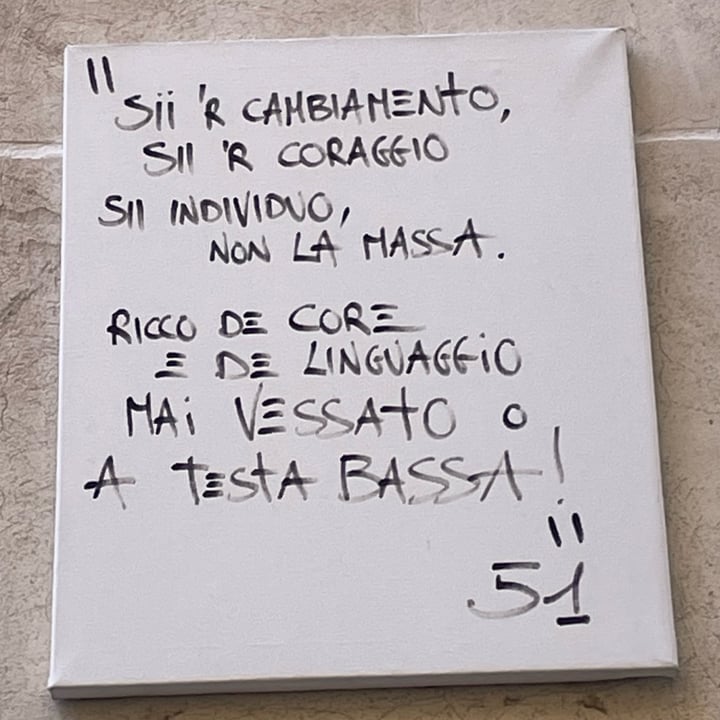 "
Sii 'R CAMBIAMENTO,
SII 'R CORAGGIO
SII INDIVIDUO,
NON LA MASSA.
RICCO DE CORE
E DE LINGUAGGiO
MAi VESSATO o
A TESTA BASSA!
"
51